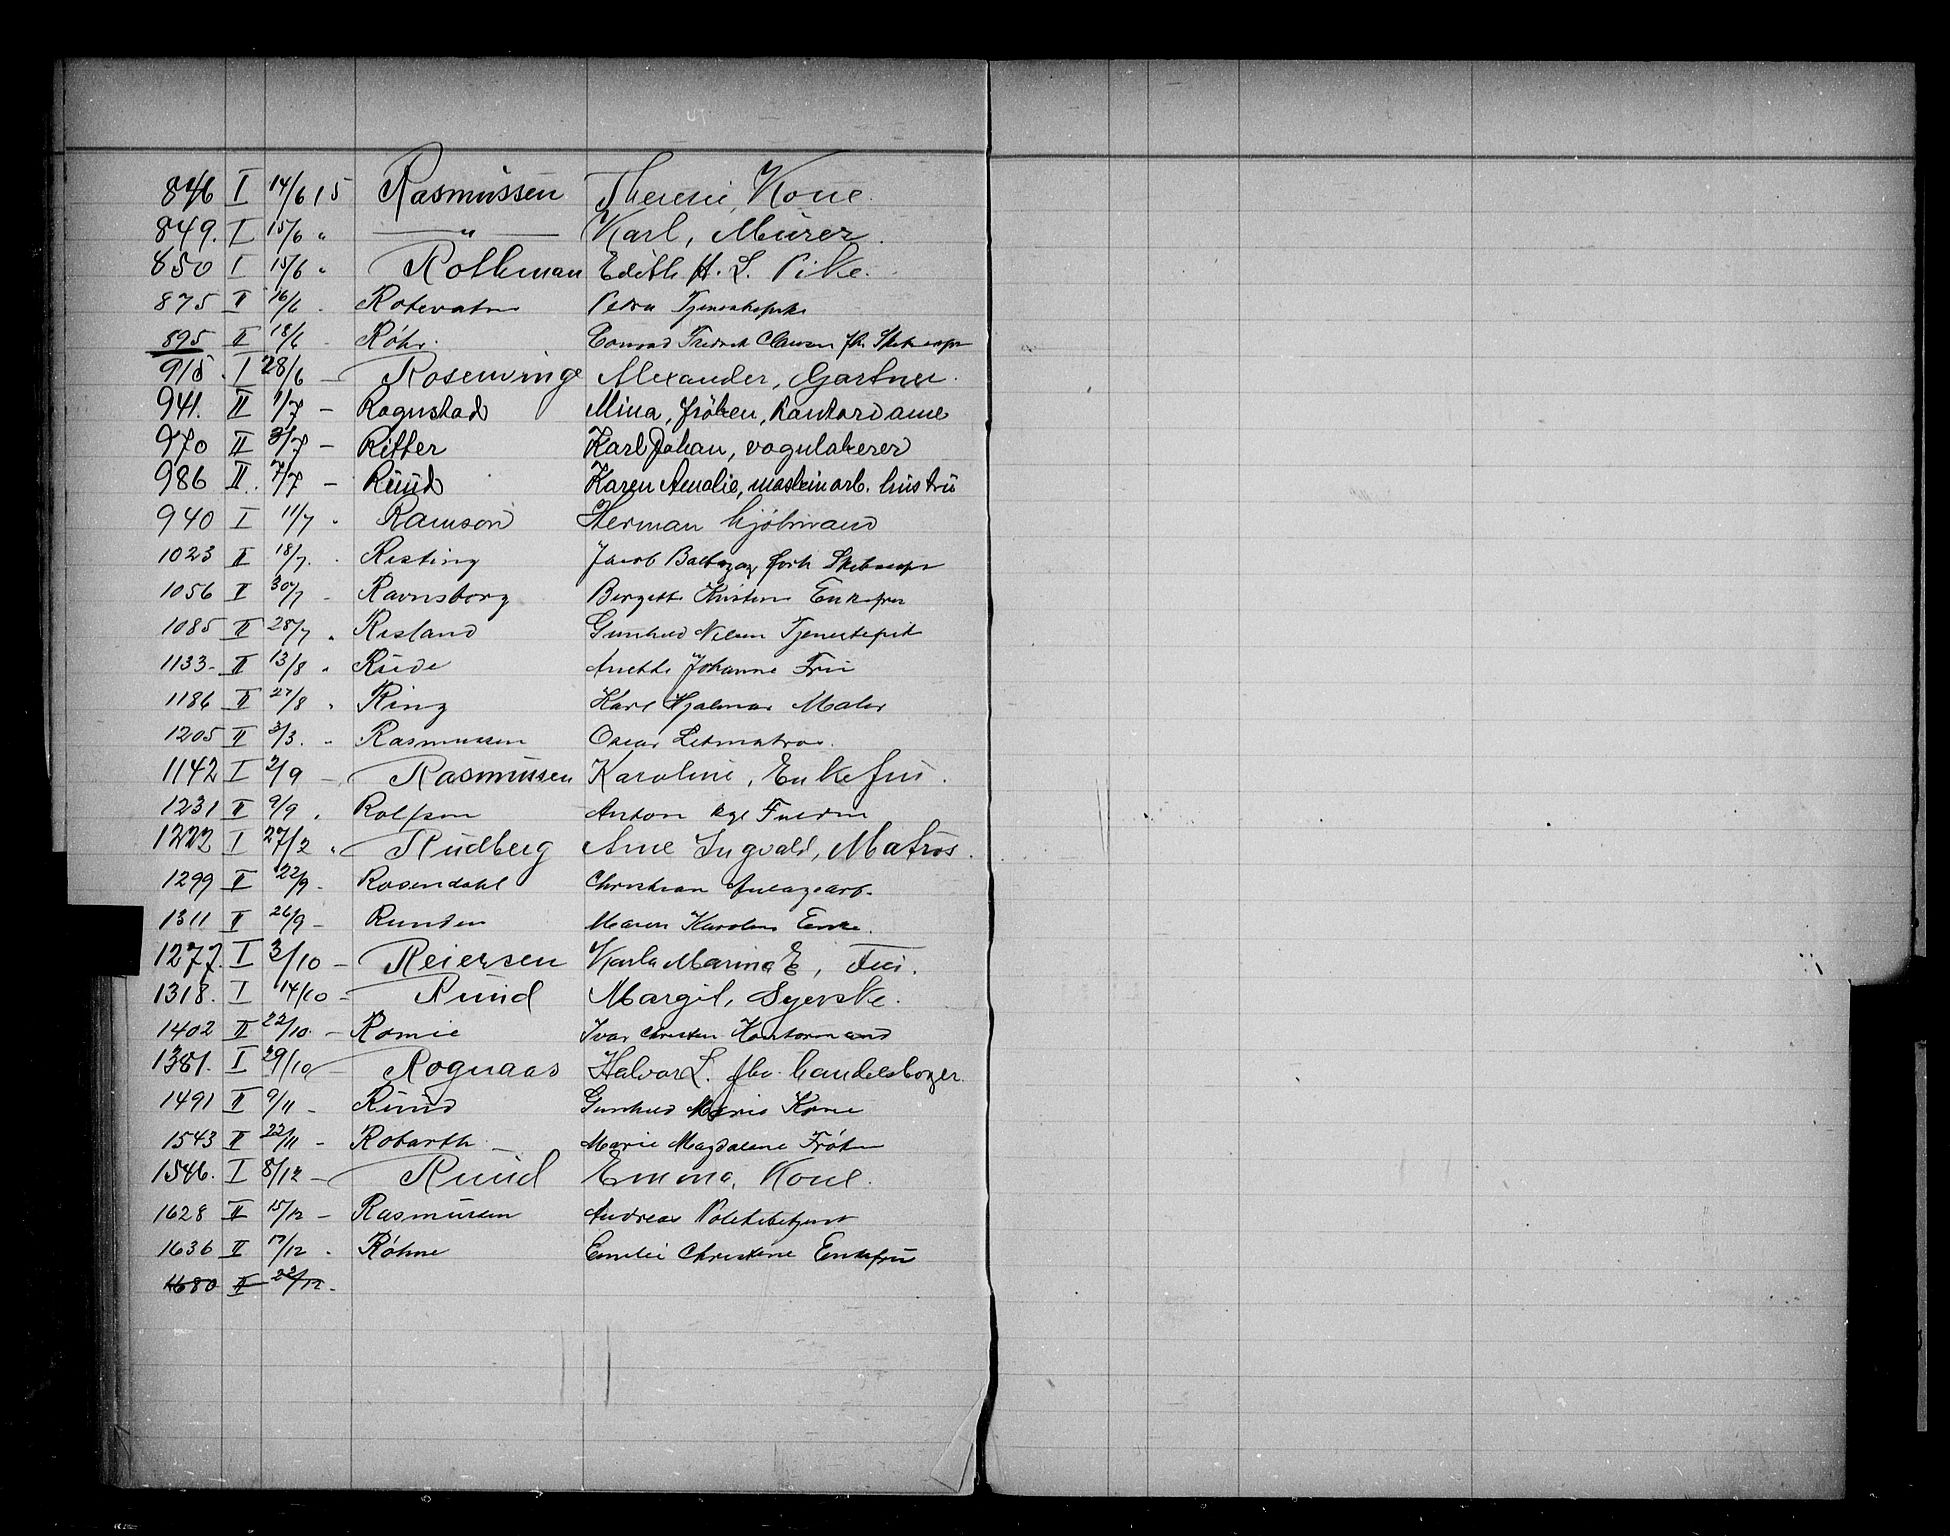 846 I 14/6 15 Rasmussen Theresie, Kone.
849. I 15/6 " — " — Karl, Murer.
850 I 15/6 " Rothman Edith H. L. Pike.
875 II 16/6 . Rotevatn Petra Tjenestepike
895 II 18/6 - Röhr. Conrad Fredrik Clausen fh. Skibsexp
918 I 28/6 — Rosenvinge Alexander, Gartner.
941. II 1/7 — Rognstad Mina, fröken, Kontordame
970 II 3/7 — Ritter Karl Johan, vognlakerer
986 II. 7/7 — Ruud Karen Amalie, maskinarb. hustru
940 I 11/7 " Ramson Herman
1023 II 18/7. . Risting Jacob Baltazar forh Skibsexp
1056 II 30/7 - Ravnsborg Bergitte Kristine Enkefru
1085 II 28/7 " Risland Gunhild Nilsen Tjenestepik
1133- II 13/8 " Rude Anette Johanne Fru
1186 II 27/8 " Ring Karl Hjalmar Maler
1205 II 3/3. " Rasmussen Oscar Letmatros.
1142 I 2/9 — Rasmussen Karoline, Enkefru.
1231 II 9/9 " Rolfson Anton
1222 I 27/2 " Rudberg Arne Ingvald, Matros.
1299 II 22/9 - Rosendahl Christian Anlægsarb.
1311 II 26/9 — Runden Maren Karoline Enke.
1277. I 3/10 — Reiersen Karla Marina E, Fru.
1318. I 14/10 — Ruud Margit, Syerske.
1402 II 22/10. — Romie Ivar Christen Kontormand
1381. I 29/10 — Rognaas Halvor L. fhv. handelsborger.
1491 II 9/11 - Ruud Gunhild Marie Kone
1543 II 22/11 - Robarth Marie Magdalene Fröken
1546. I 8/12 — Ruud Emma, Kone.
1628 II 15/12 — Rasmussen Andreas Politibetjent
1636 II 17/12 . Röhne Emilie Christine Enkefru
1680 II 22/12 -